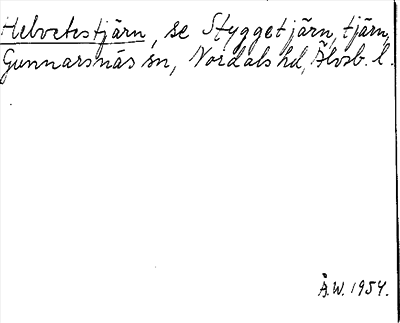 Helvetestjärn, se Styggetjärn, tjärn,
Gunnarsnäs sn, Nordals hd, Älvsb. l.
Å.W. 1954.